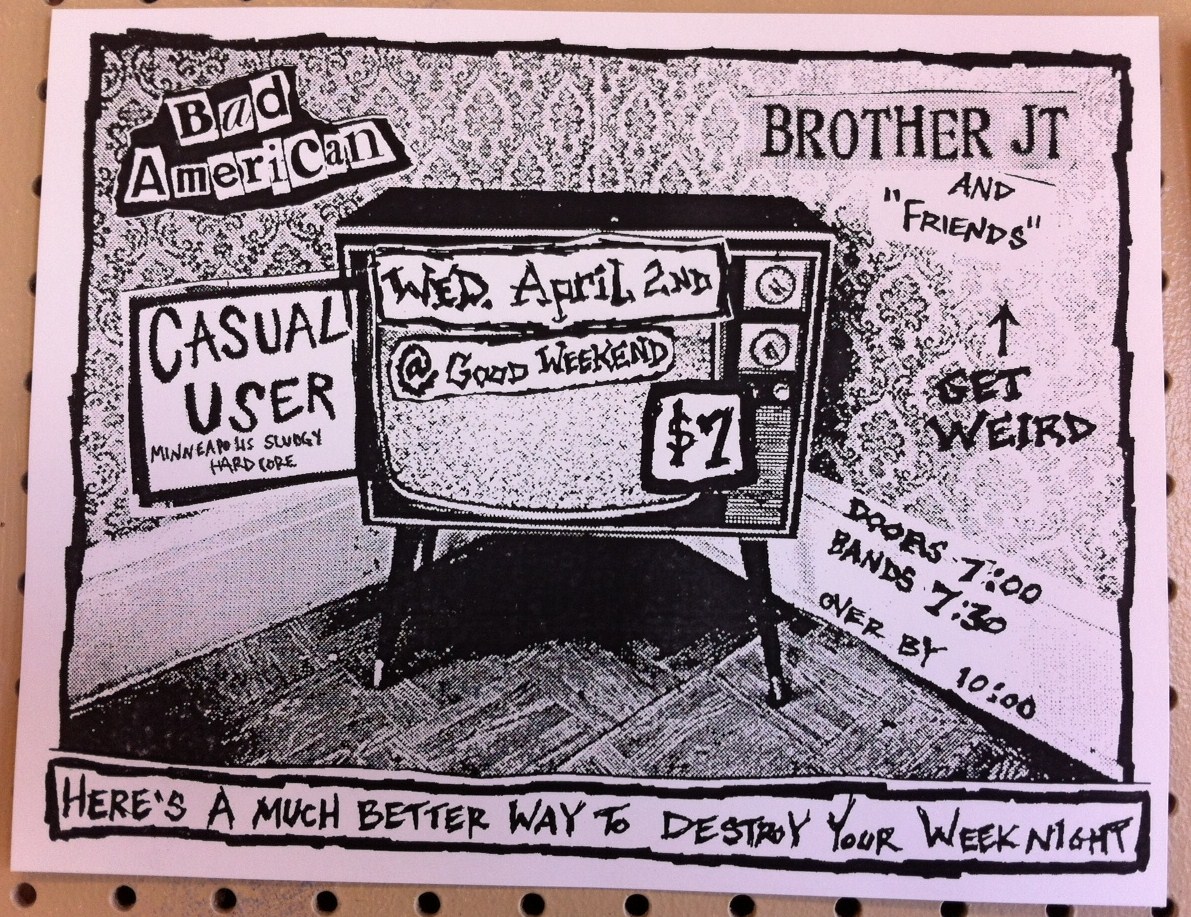 Bad
American
BROTHER JT
AND
"FRIENDS"
↑
GET
WEIRD
CASUAL
USER
MINNEAPOLIS SLUDGY
HARDCORE
WED. April 2ND
@ GOOD WEEKEND
$7
DOORS 7:00
BANDS 7:30
OVER BY 10:00
HERE'S A MUCH BETTER WAY TO DESTROY YOUR WEEKNIGHT